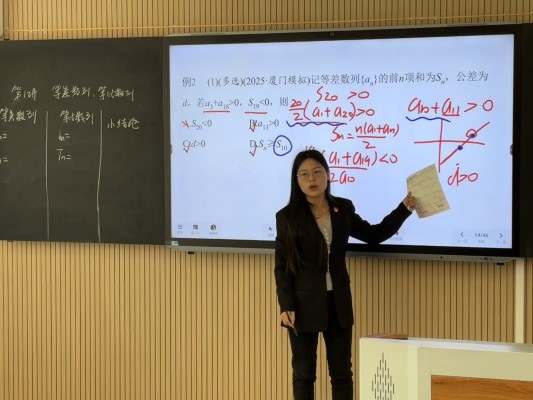 第12讲 等差数列、等比数列
等差数列
等比数列
小结论
an=
bn=
Tn=
例2 (1)(多选)(2025·厦门模拟)记等差数列{aₙ}的前n项和为Sₙ，公差为
d，若a₃+a₁₈>0，S₁₉<0，则
A.S₂₀<0
B.a₁₁>0
C.d>0
D.Sₙ≥S₁₀
S20 >0
20/2 (a1+a20)>0
Sn=n(a1+an)/2
a1+a19)<0
2a10
a10+a11>0
d>0
14/46